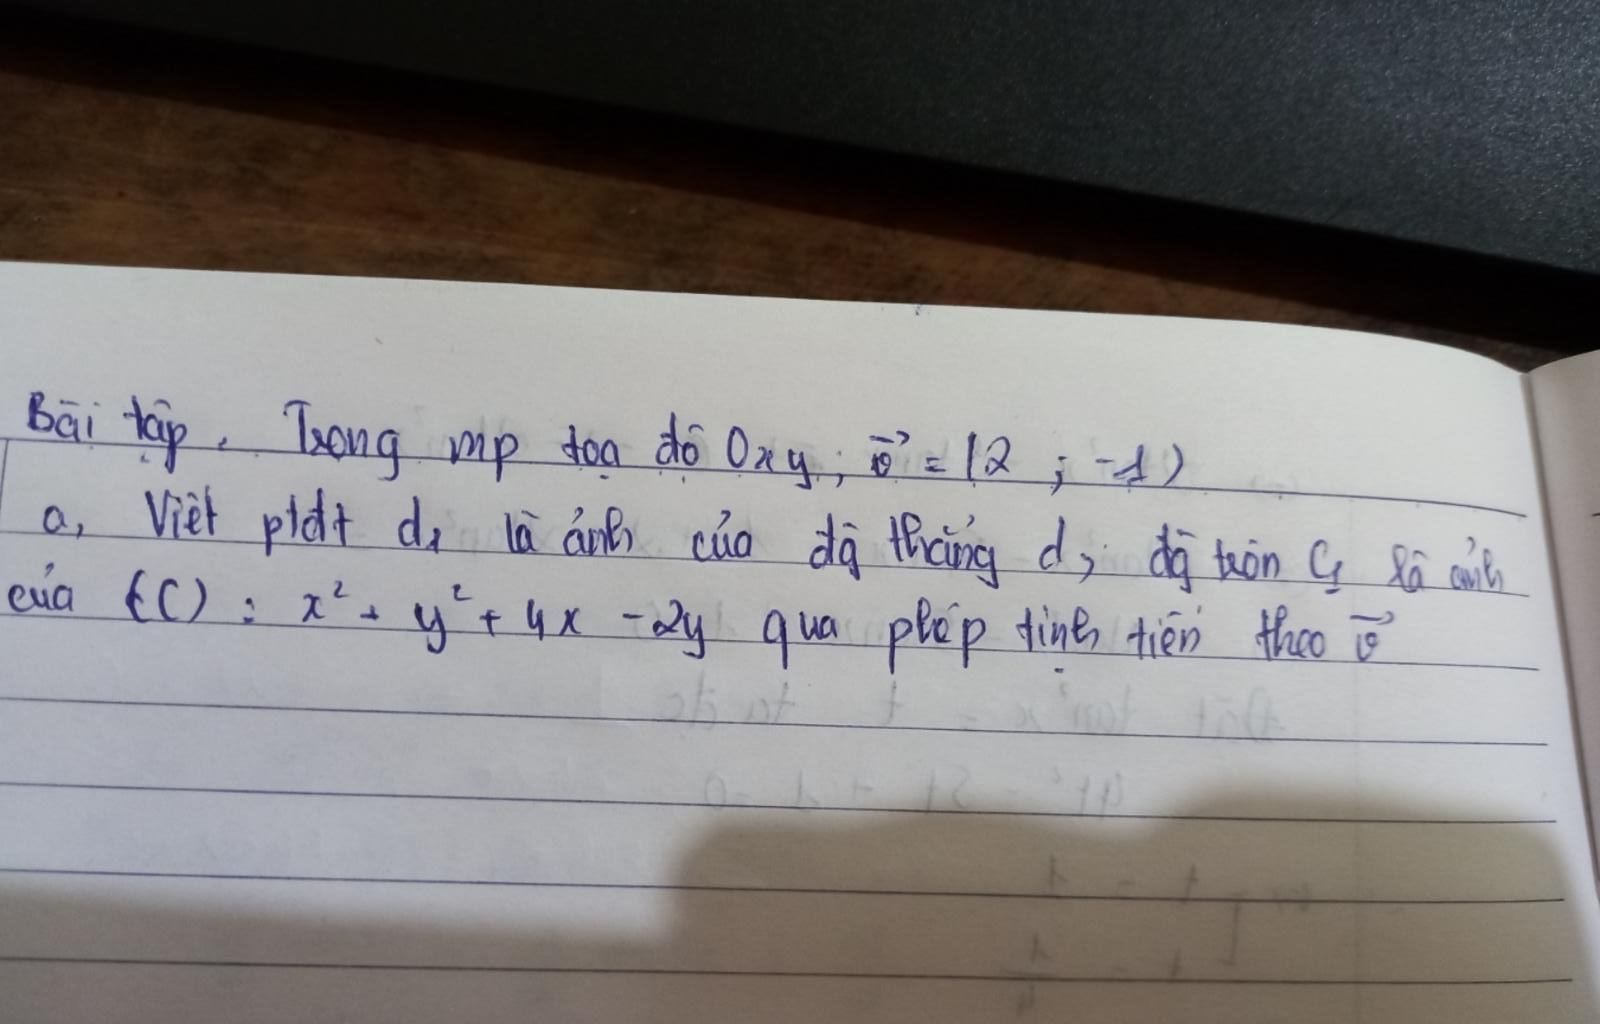 Bài tập. Trong mp tọa độ Oxy; v⃗ = (2 ; -1)
a, Viết ptđt d₁ là ảnh của đg thẳng d; đg tròn C₁ là ảnh
của (C) : x² + y² + 4x - 2y qua phép tịnh tiến theo v⃗